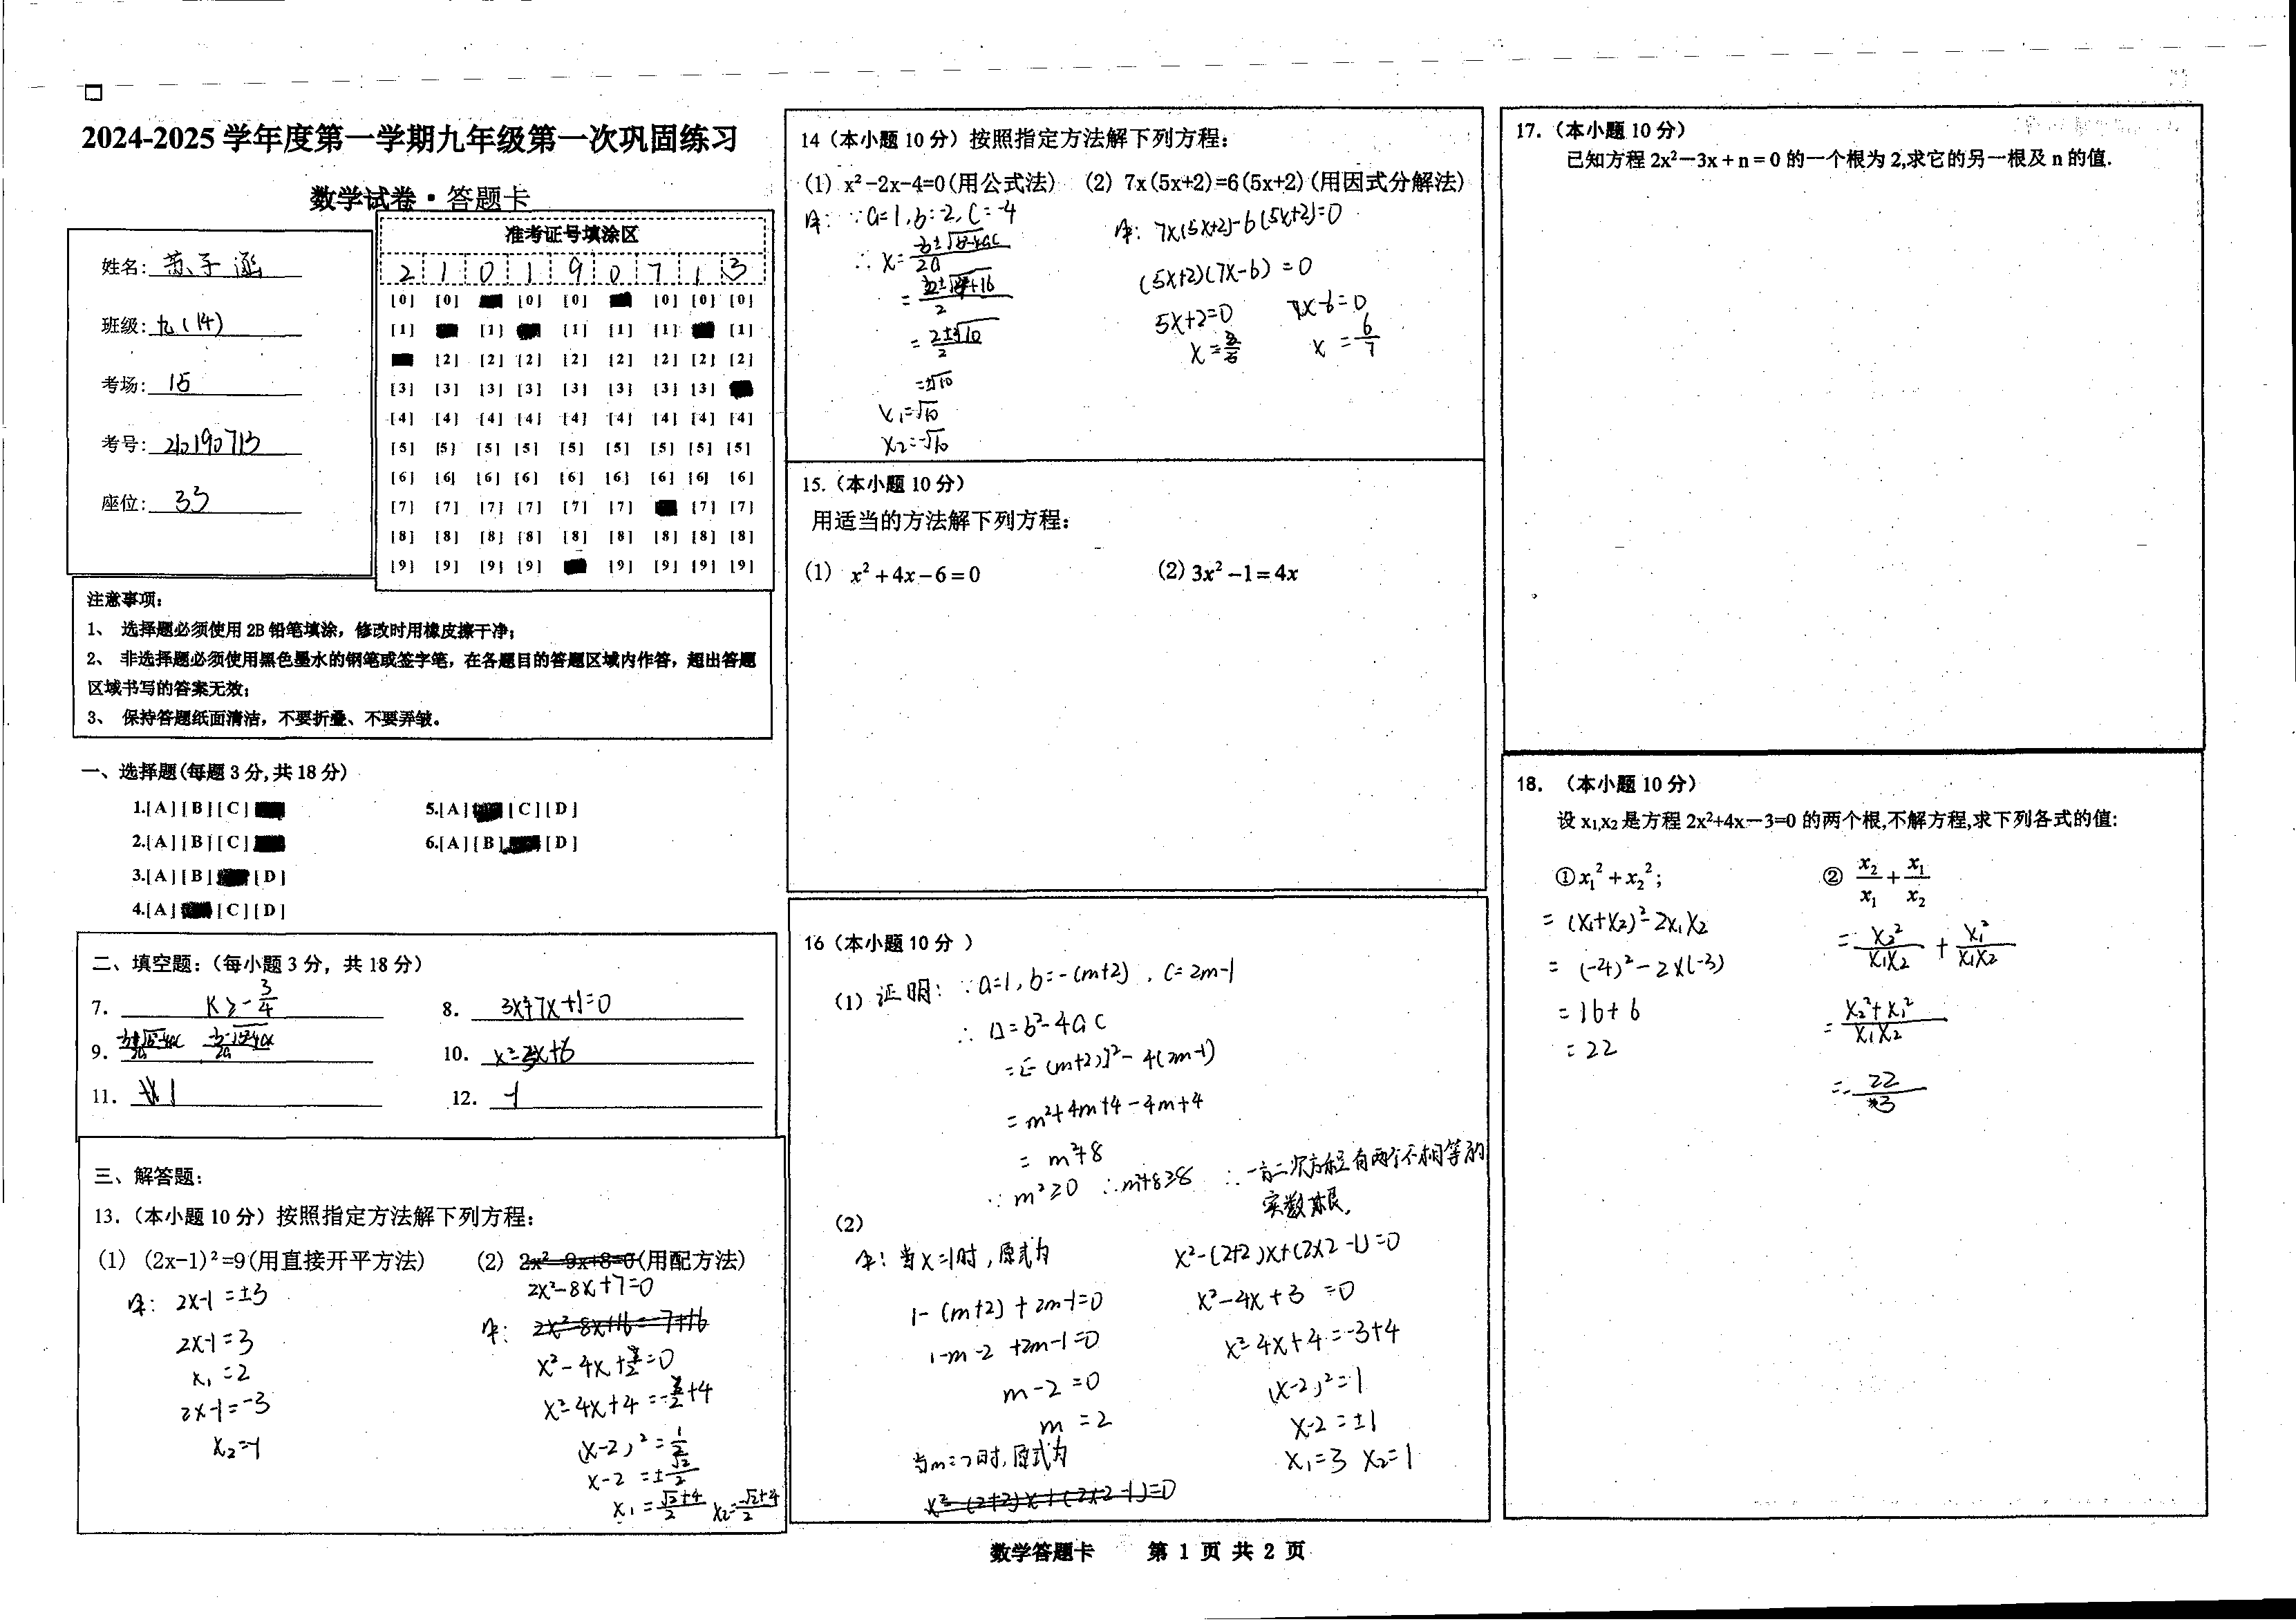 2024-2025 学年度第一学期九年级第一次巩固练习
数学试卷·答题卡
姓名: 苏子涵
班级: 九(14)
考场: 15
考号: 210190713
座位: 33
准考证号填涂区
2 1 0 1 9 0 7 1 3
[0] [0] [0] [0] [0] [0] [0]
[1] [1] [1] [1] [1] [1]
[2] [2] [2] [2] [2] [2] [2] [2]
[3] [3] [3] [3] [3] [3] [3] [3]
[4] [4] [4] [4] [4] [4] [4] [4] [4]
[5] [5] [5] [5] [5] [5] [5] [5] [5]
[6] [6] [6] [6] [6] [6] [6] [6] [6]
[7] [7] [7] [7] [7] [7] [7] [7]
[8] [8] [8] [8] [8] [8] [8] [8] [8]
[9] [9] [9] [9] [9] [9] [9] [9]
注意事项:
1、 选择题必须使用 2B 铅笔填涂，修改时用橡皮擦干净;
2、 非选择题必须使用黑色墨水的钢笔或签字笔，在各题目的答题区域内作答，超出答题
区域书写的答案无效;
3、 保持答题纸面清洁，不要折叠、不要弄皱。
一、选择题(每题 3 分,共 18 分)
1.[A][B][C]
5.[A] [C][D]
2.[A][B][C]
6.[A][B] [D]
3.[A][B] [D]
4.[A] [C][D]
二、填空题:（每小题 3 分，共 18 分）
7. K≥-3/4
8. 3x²+7x+1=0
9.
10.
11. 1
12. -1
三、解答题:
13.（本小题 10 分）按照指定方法解下列方程:
(1) (2x-1)²=9(用直接开平方法)
解: 2x-1=±3
2x-1=3
x₁=2
2x-1=-3
x₂=-1
(2) 2x²-9x+8=0(用配方法)
2x²-8x+7=0
解: 2x²-8x+16=-7+16
x²-4x+7/2=0
x²-4x+4=-7/2+4
(x-2)²=1/2
x-2=±√2/2
x₁=(√2+4)/2 x₂=(-√2+4)/2
14（本小题 10 分）按照指定方法解下列方程:
(1) x²-2x-4=0(用公式法) (2) 7x(5x+2)=6(5x+2)(用因式分解法)
解: ∵a=1,b=-2,c=-4
∴x=(-b±√(b²-4ac))/2a
=(2±√(4+16))/2
=(2±2√10)/2
=±√10
x₁=√10
x₂=-√10
解: 7x(5x+2)-6(5x+2)=0
(5x+2)(7x-6)=0
5x+2=0 7x-6=0
x=2/5 x=6/7
15.（本小题 10 分）
用适当的方法解下列方程:
(1) x²+4x-6=0 (2) 3x²-1=4x
16（本小题 10 分 ）
(1) 证明: ∵a=1,b=-(m+2),c=2m-1
∴Δ=b²-4ac
=[-(m+2)]²-4(2m-1)
=m²+4m+4-4m+4
=m²+8
∵m²≥0 ∴m²+8≥8 ∴一元二次方程有两个不相等的
实数根.
(2)
解: 当x=1时,原式为
1-(m+2)+2m-1=0
1-m-2+2m-1=0
m-2=0
m=2
当m=2时,原式为
x²-(2+2)x+(2x2-1)=0
x²-(2+2)x+(2x2-1)=0
x²-4x+3=0
x²-4x+4=-3+4
(x-2)²=1
x-2=±1
x₁=3 x₂=1
17.（本小题 10 分）
已知方程 2x²-3x+n=0 的一个根为 2,求它的另一根及 n 的值.
18. （本小题 10 分）
设 x₁,x₂ 是方程 2x²+4x-3=0 的两个根,不解方程,求下列各式的值:
①x₁²+x₂²;
=(x₁+x₂)²-2x₁x₂
=(-4)²-2x(-3)
=16+6
=22
② x₂/x₁+x₁/x₂
=x₂²/x₁x₂+x₁²/x₁x₂
=(x₂²+x₁²)/x₁x₂
=-22/3
数学答题卡 第 1 页 共 2 页